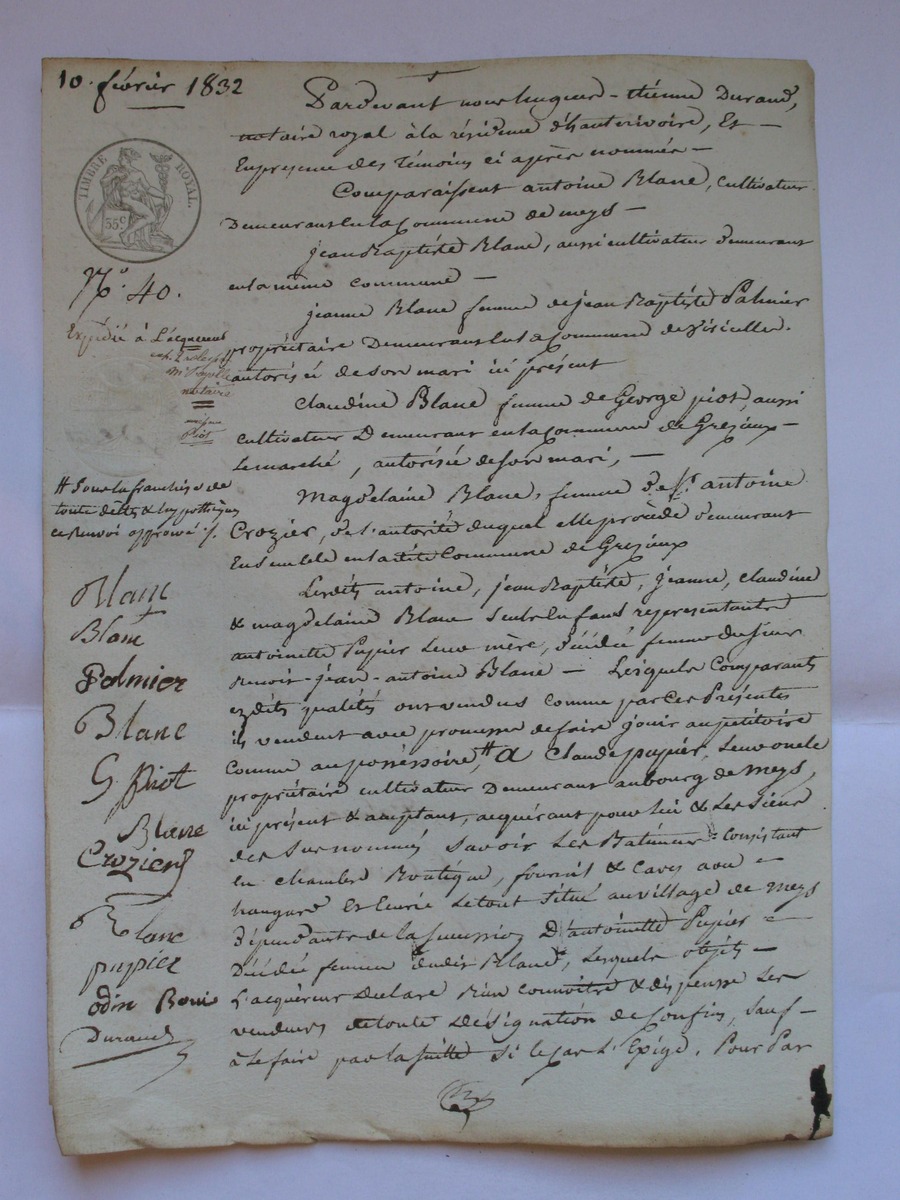 10. février 1832
TIMBRE ROYAL.
35c
No. 40.
Expédié à l'acquereur
notaire
Piot
# Sous la franchise de
toute dettes & hypothèques
ce renvoi approuvé ./.
Blanc
Blanc
Palmier
Blanc
G. Piot
Blanc
Crozier
Blanc
pupier
odin
Durand
Pardevant nous hugues-étienne Durand,
notaire royal à la résidence d'hauterivoire, Et
En presence des témoins ci après nommés
Comparaissent antoine Blanc, cultivateur
Demeurant en la Commune de meys
jean Baptiste Blanc, aussi cultivateur demeurant
en la même commune
jeanne Blanc femme de jean Baptiste Palmier
propriétaire Demeurant en la Commune de
autorisée de son mari ici présent
Claudine Blanc femme de George piot, aussi
cultivateur Demeurant en la Commune de Grezieux
Lemarché, autorisée de son mari,
Magdelaine Blanc, femme de Sr. antoine
Crozier, de l'autorité duquel elle procède demeurant
Ensemble en la dite Commune de Grezieux
Lesdits antoine, jean Baptiste, jeanne, Claudine
& magdelaine Blanc seuls enfans représentants
antoinette Pupier leur mère, décédée femme du sieur
Benoit-jean-antoine Blanc — Lesquels Comparants
ezdits qualités ont vendus comme par ces Présentes
ils vendent avec promesse de faire jouir au petitoire
Comme au possessoire, # A Claude pupier, leur oncle
propriétaire cultivateur demeurant au bourg de meys,
ici présent & acceptant, acquérant pour lui & les siens
des susnommés Savoir Les Batimens Consistant
en chambre Boutique, fournil & caves avec
hangard Et Ecurie le tout situé au village de Meys
Dépendants de la succession D'antoinette Pupier
Décédée femme dudit Blanc, Lesquels objets
L'acquéreur déclare bien connoitre & dispense les
vendeurs de toute désignation de confins, sauf
à le faire par la suite si le cas l'Exige. Pour Par